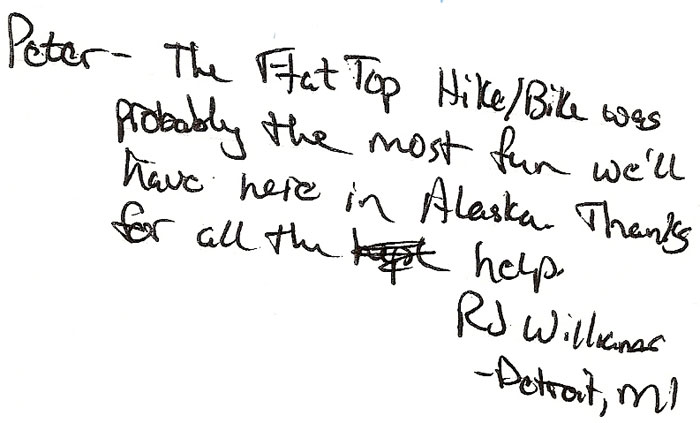 Peter - The Flat Top Hike/Bike was
probably the most fun we'll
have here in Alaska. Thanks
for all the help.
RJ Williams
-Detroit, MI